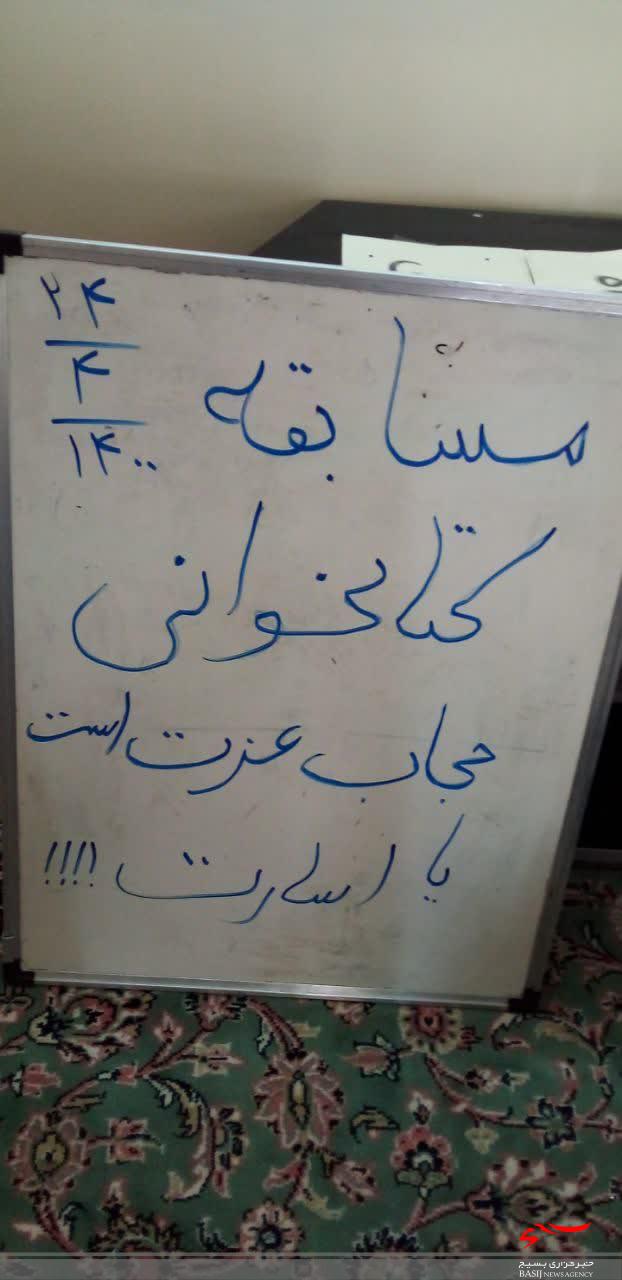 مسابقه
۲۴
۴
۱۴۰۰
کتابخوانی
حجاب عزت است
یا اسارت !!!!
بسیج
خبرگزاری بسیج
BASIJ NEWS AGENCY